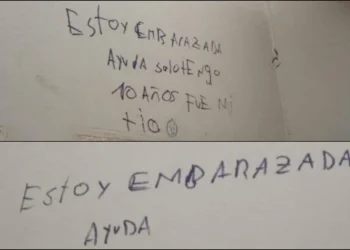 Estoy EMBARAZADA
AyuDA solotENgo
10 AÑOS FUE Mi
tio
Estoy EMBARAZADA
AyuDA